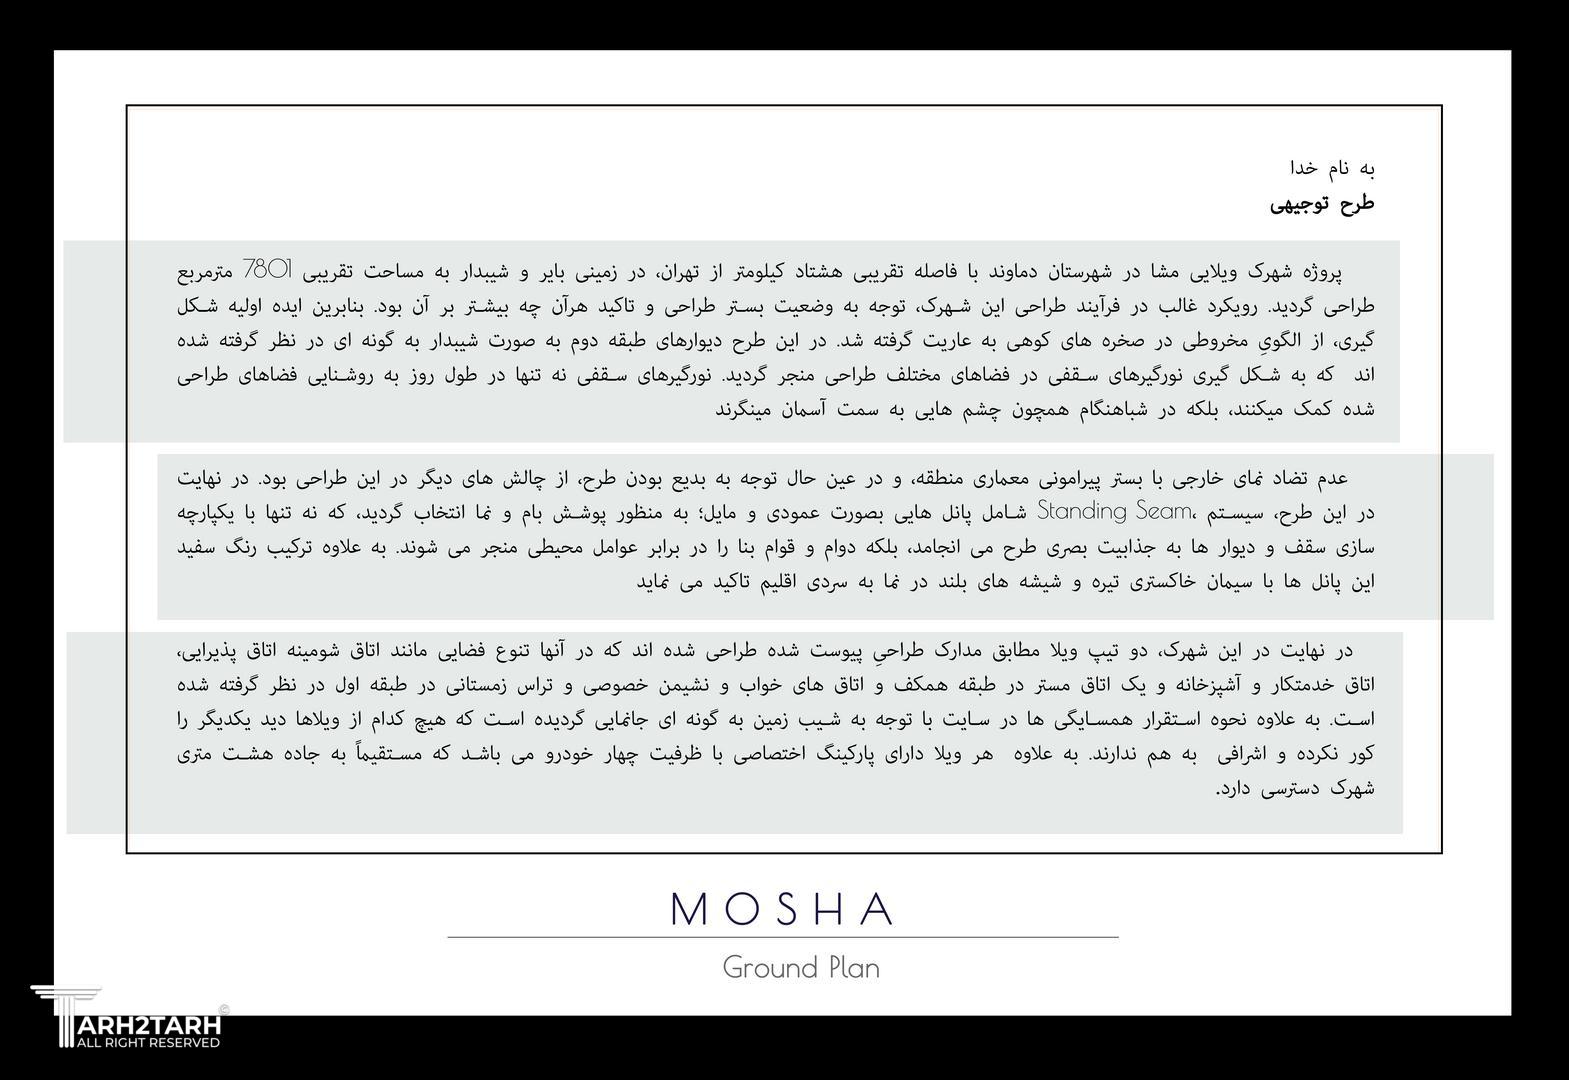 به نام خدا
طرح توجیهی
پروژه شهرک ویلایی مشا در شهرستان دماوند با فاصله تقریبی هشتاد کیلومتر از تهران، در زمینی بایر و شیبدار به مساحت تقریبی 7801 مترمربع
طراحی گردید. رویکرد غالب در فرآیند طراحی این شهرک، توجه به وضعیت بستر طراحی و تاکید هرآن چه بیشتر بر آن بود. بنابرین ایده اولیه شکل
گیری، از الگویِ مخروطی در صخره های کوهی به عاریت گرفته شد. در این طرح دیوارهای طبقه دوم به صورت شیبدار به گونه ای در نظر گرفته شده
اند که به شکل گیری نورگیرهای سقفی در فضاهای مختلف طراحی منجر گردید. نورگیرهای سقفی نه تنها در طول روز به روشنایی فضاهای طراحی
شده کمک میکنند، بلکه در شباهنگام همچون چشم هایی به سمت آسمان مینگرند
عدم تضاد نمای خارجی با بستر پیرامونی معماری منطقه، و در عین حال توجه به بدیع بودن طرح، از چالش های دیگر در این طراحی بود. در نهایت
در این طرح، سیستم Standing Seam، شامل پانل هایی بصورت عمودی و مایل؛ به منظور پوشش بام و نما انتخاب گردید، که نه تنها با یکپارچه
سازی سقف و دیوار ها به جذابیت بصری طرح می انجامد، بلکه دوام و قوام بنا را در برابر عوامل محیطی منجر می شوند. به علاوه ترکیب رنگ سفید
این پانل ها با سیمان خاکستری تیره و شیشه های بلند در نما به سردی اقلیم تاکید می نماید
در نهایت در این شهرک، دو تیپ ویلا مطابق مدارک طراحیِ پیوست شده طراحی شده اند که در آنها تنوع فضایی مانند اتاق شومینه اتاق پذیرایی،
اتاق خدمتکار و آشپزخانه و یک اتاق مستر در طبقه همکف و اتاق های خواب و نشیمن خصوصی و تراس زمستانی در طبقه اول در نظر گرفته شده
است. به علاوه نحوه استقرار همسایگی ها در سایت با توجه به شیب زمین به گونه ای جانمایی گردیده است که هیچ کدام از ویلاها دید یکدیگر را
کور نکرده و اشرافی به هم ندارند. به علاوه هر ویلا دارای پارکینگ اختصاصی با ظرفیت چهار خودرو می باشد که مستقیماً به جاده هشت متری
شهرک دسترسی دارد.
MOSHA
Ground Plan
TARH2TARH©
ALL RIGHT RESERVED